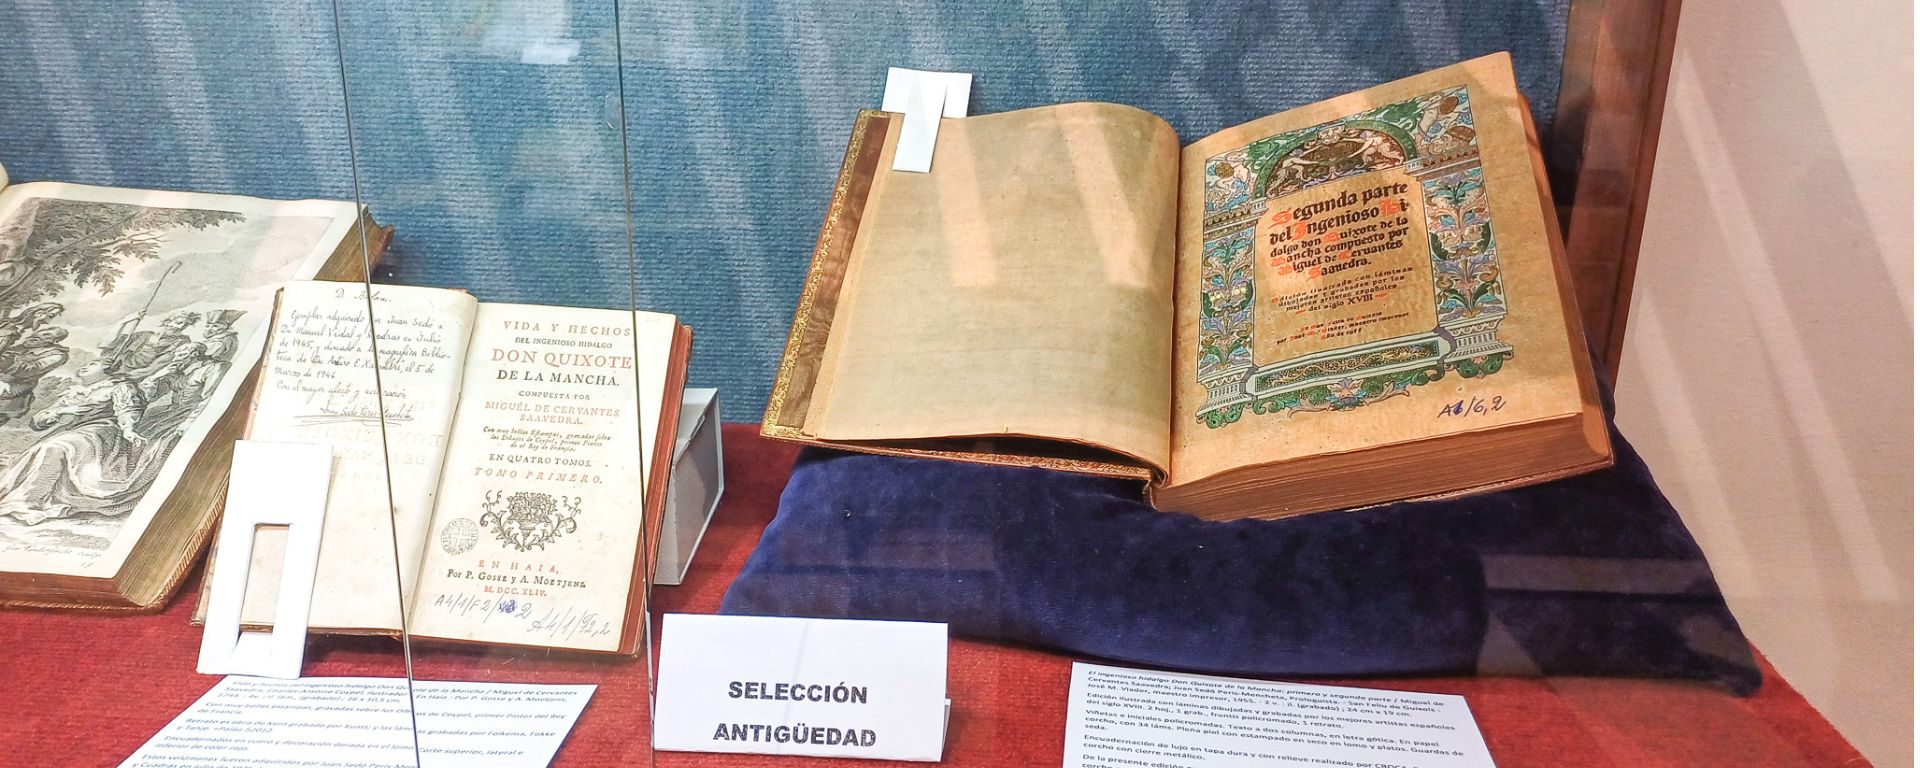 D. Belan.
Ejemplar adquirido por Juan Sedó a
Dn. Manuel Vidal y Cuadras en Julio
de 1945, y donado a la magnífica Biblio-
teca de Dn. Arturo E. Xalambrí, el 5 de
Marzo de 1946
Con el mayor afecto y admiración
Juan Sedó Peris-Mencheta
VIDA Y HECHOS
DEL INGENIOSO HIDALGO
DON QUIXOTE
DE LA MANCHA,
COMPUESTA POR
MIGUÉL DE CERVANTES
SAAVEDRA.
Con muy bellas Estampas, gravadas sobre
los Dibujos de Coypel, primer Pintor
de el Rey de Francia.
EN QUATRO TOMOS.
TOMO PRIMERO.
EN HAIA,
Por P. GOSSE y A. MOETJENS,
M. DCC. XLIV.
A4/1/F2/ 2
A4/1/F2,2
Segunda parte
del Ingenioso Hi-
dalgo don Quixote de la
Mancha compuesto por
Miguel de Cervantes
Saavedra.
Edición ilustrada con láminas
dibujadas y grabadas por los
mejores artistas españoles
del siglo XVIII
año de 1955
/6,2
SELECCIÓN
ANTIGÜEDAD
Vida y hechos del ingenioso hidalgo Don Quixote de la Mancha / Miguel de Cervantes
Saavedra, Charles Antoine Coypel, ilustrador. - En Haia : Por P. Gosse y A. Moetjens,
1744. - 4v. : il. lám., (grabado) ; 16 x 10,5 cm.
Con muy bellas estampas, gravadas sobre los Dibujos de Coypel, primer Pintor del Rey
de Francia.
Retrato es obra de Kent grabado por Kunti; y las láminas grabadas por Folkema, Fokke
y Tanjé. =Palau 52012.
Encuadernados en cuero y decoración dorada en el lomo. Corte superior, lateral e
inferior de color rojo.
Estos volúmenes fueron adquiridos por Juan Sedó Peris-Men
y Cuadras en julio de
El ingenioso hidalgo Don Quixote de la Mancha: primero y segunda parte / Miguel de
Cervantes Saavedra; Juan Sedó Peris-Mencheta, Prologuista. - San Feliu de Guixols :
José M. Viader, maestro impresor, 1955. - 2 v. : il. (grabado) ; 24 cm x 19 cm.
Edición ilustrada con láminas dibujadas y grabadas por los mejores artistas españoles
del siglo XVIII. 2 hoj., 1 grab., frontis policromado, 1 retrato.
Viñetas e iniciales policromadas. Texto a dos columnas, en letra gótica. En papel
corcho, con 34 láms. Plena piel con estampado en seco en lomo y platos. Guardas de
seda.
Encuadernación de lujo en tapa dura y con relieve realizado por
corcho con cierre metálico.
De la presente edición